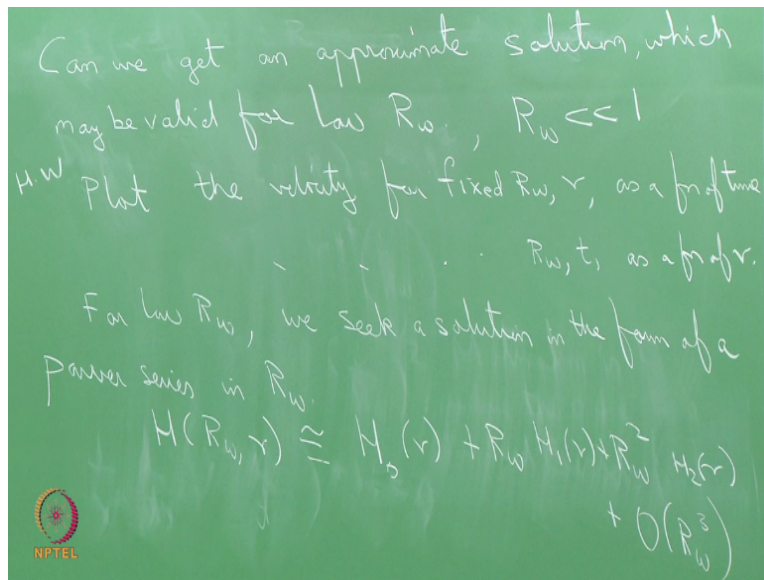 Can we get an approximate solution, which
may be valid for low Rω, Rω << 1
H.W Plot the velocity for fixed Rω, r, as a fn of time
Rω, t, as a fn of r.
For low Rω, we seek a solution in the form of a
power series in Rω.
H(Rω, r) ≅ H₀(r) + Rω H₁(r) + Rω² H₂(r)
+ O(Rω³)
NPTEL